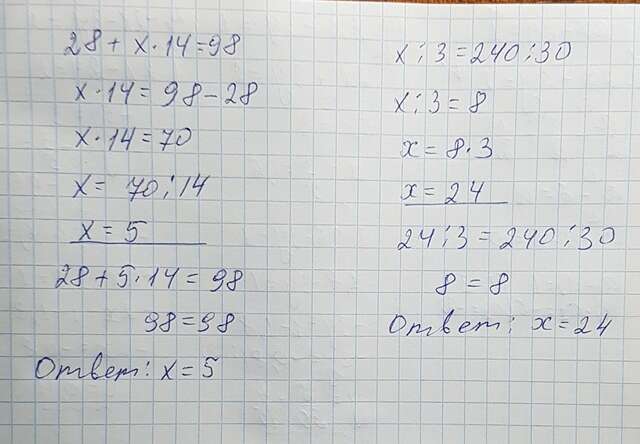 28 + x · 14 = 98
x · 14 = 98 - 28
x · 14 = 70
x = 70 : 14
x = 5
28 + 5 · 14 = 98
98 = 98
Ответ: x = 5
x : 3 = 240 : 30
x : 3 = 8
x = 8 · 3
x = 24
24 : 3 = 240 : 30
8 = 8
Ответ: x = 24